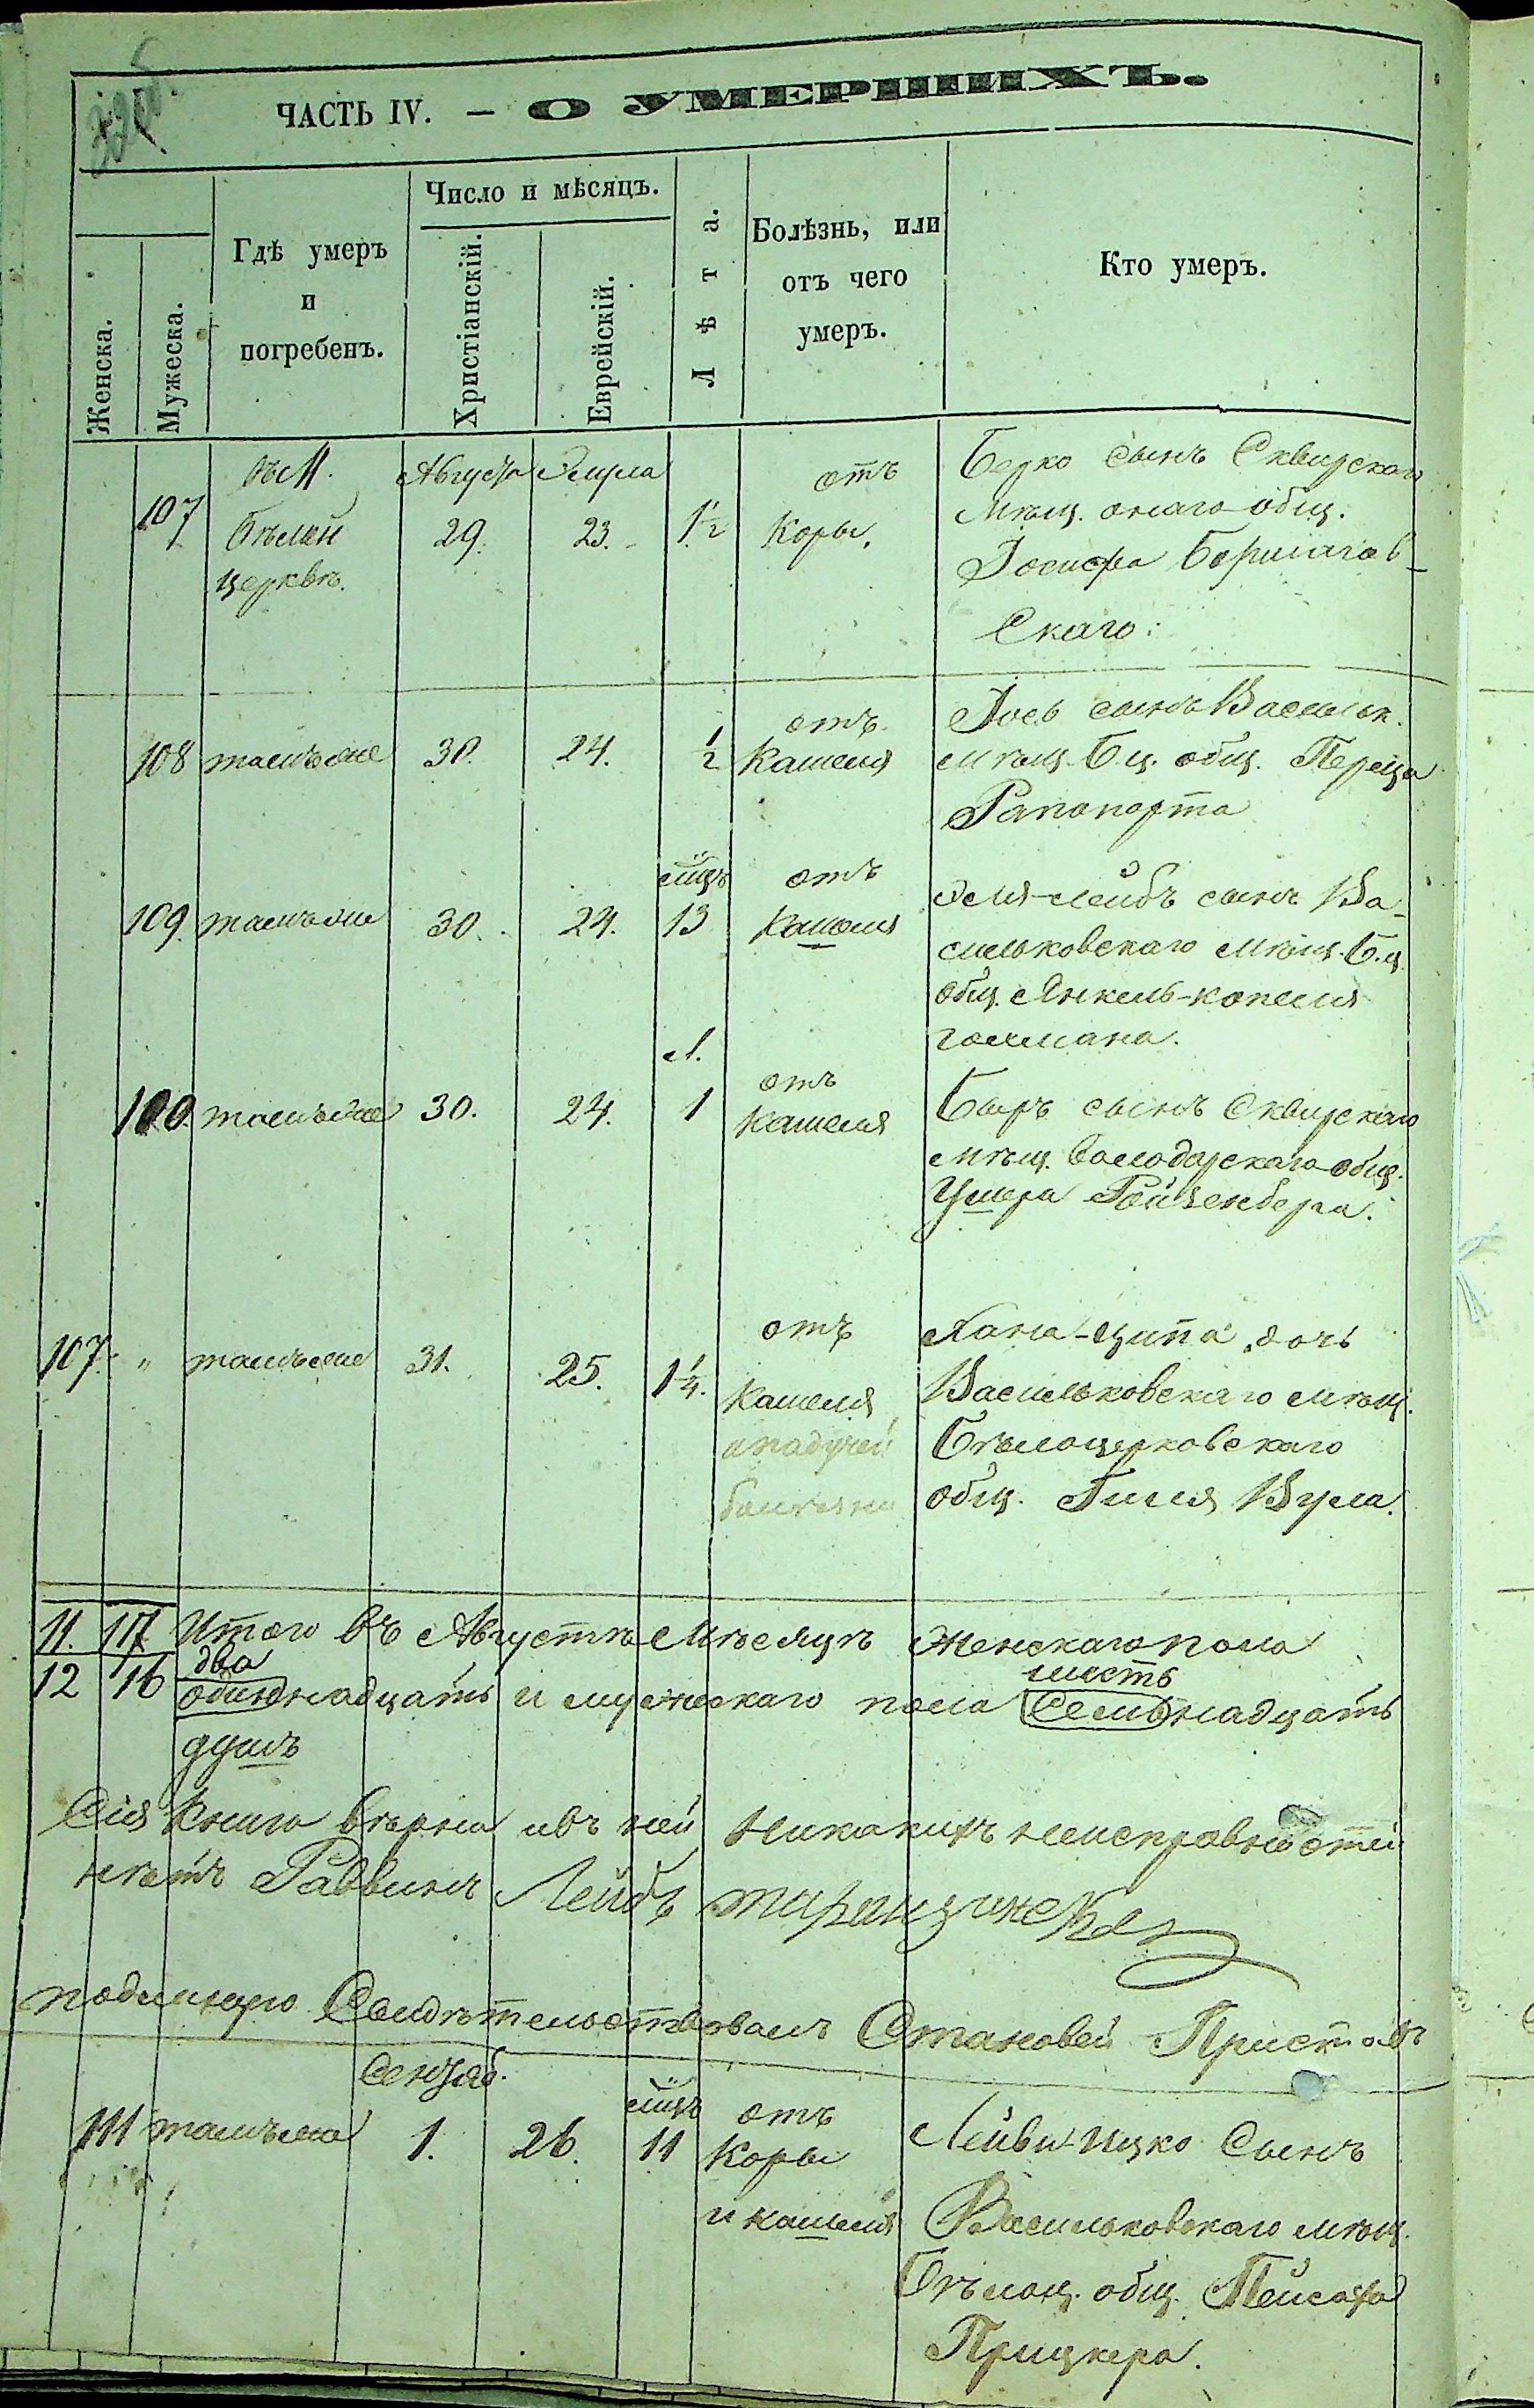 ЧАСТЬ IV. — О УМЕРШИХЪ.
Женска.
Мужеска.
Гдѣ умеръ
и
погребенъ.
Число и мѣсяцъ.
Христіанскій.
Еврейскій.
Лѣта.
Болѣзнь, или
отъ чего
умеръ.
Кто умеръ.
107
въ М.
Бѣлой
церквѣ.
Августа
29.
Элула
23.
1½
отъ
Коры.
Берко сынъ Сквирскаго
мѣщ. онаго общ.
Іосифа
Скаго:
108 тамъже 30. 24. ½
отъ
Кашеля
Іось сынъ Васильк.
мѣщ. Б.ц. общ. Переца
Рапопорта
109. тамъже 30. 24.
мцъ
13
отъ
Кашеля
Эля-Лейбъ сынъ Ва-
сильковскаго мѣщ. Б.ц.
общ. Янкель-Копеля
110. тамъже 30. 24.
Л.
1
отъ
Кашеля
Беръ сынъ Сквирскаго
мѣщ. Володарскаго общ.
Ушера Ройзенберга.
107. " тамъже 31. 25. 1¼.
отъ
Кашеля
ападучей
болѣзни
Хана-Ципа дочь
Васильковскаго мѣщ.
Бѣлоцерковскаго
общ. Гиля Вула.
11. 17 Итого въ Августѣ Мѣсяцѣ Женскаго пола
два шесть
12 16 одинднадцать и мужескаго пола Семьнадцать
душъ
Сія Книга вѣрна ивъ ней Никакихъ неисправностей
нѣтъ Раввинъ Лейбъ
подлинную Свидѣтельствовалъ Становей Приставъ
Сентяб.
111 тамъже 1. 26.
мцъ
11
отъ
Коры
и кашеля
Лейви-Ицко Сынъ
Васильковскаго мѣщ.
Бѣлоц. общ. Пейсаха
Прицкера.